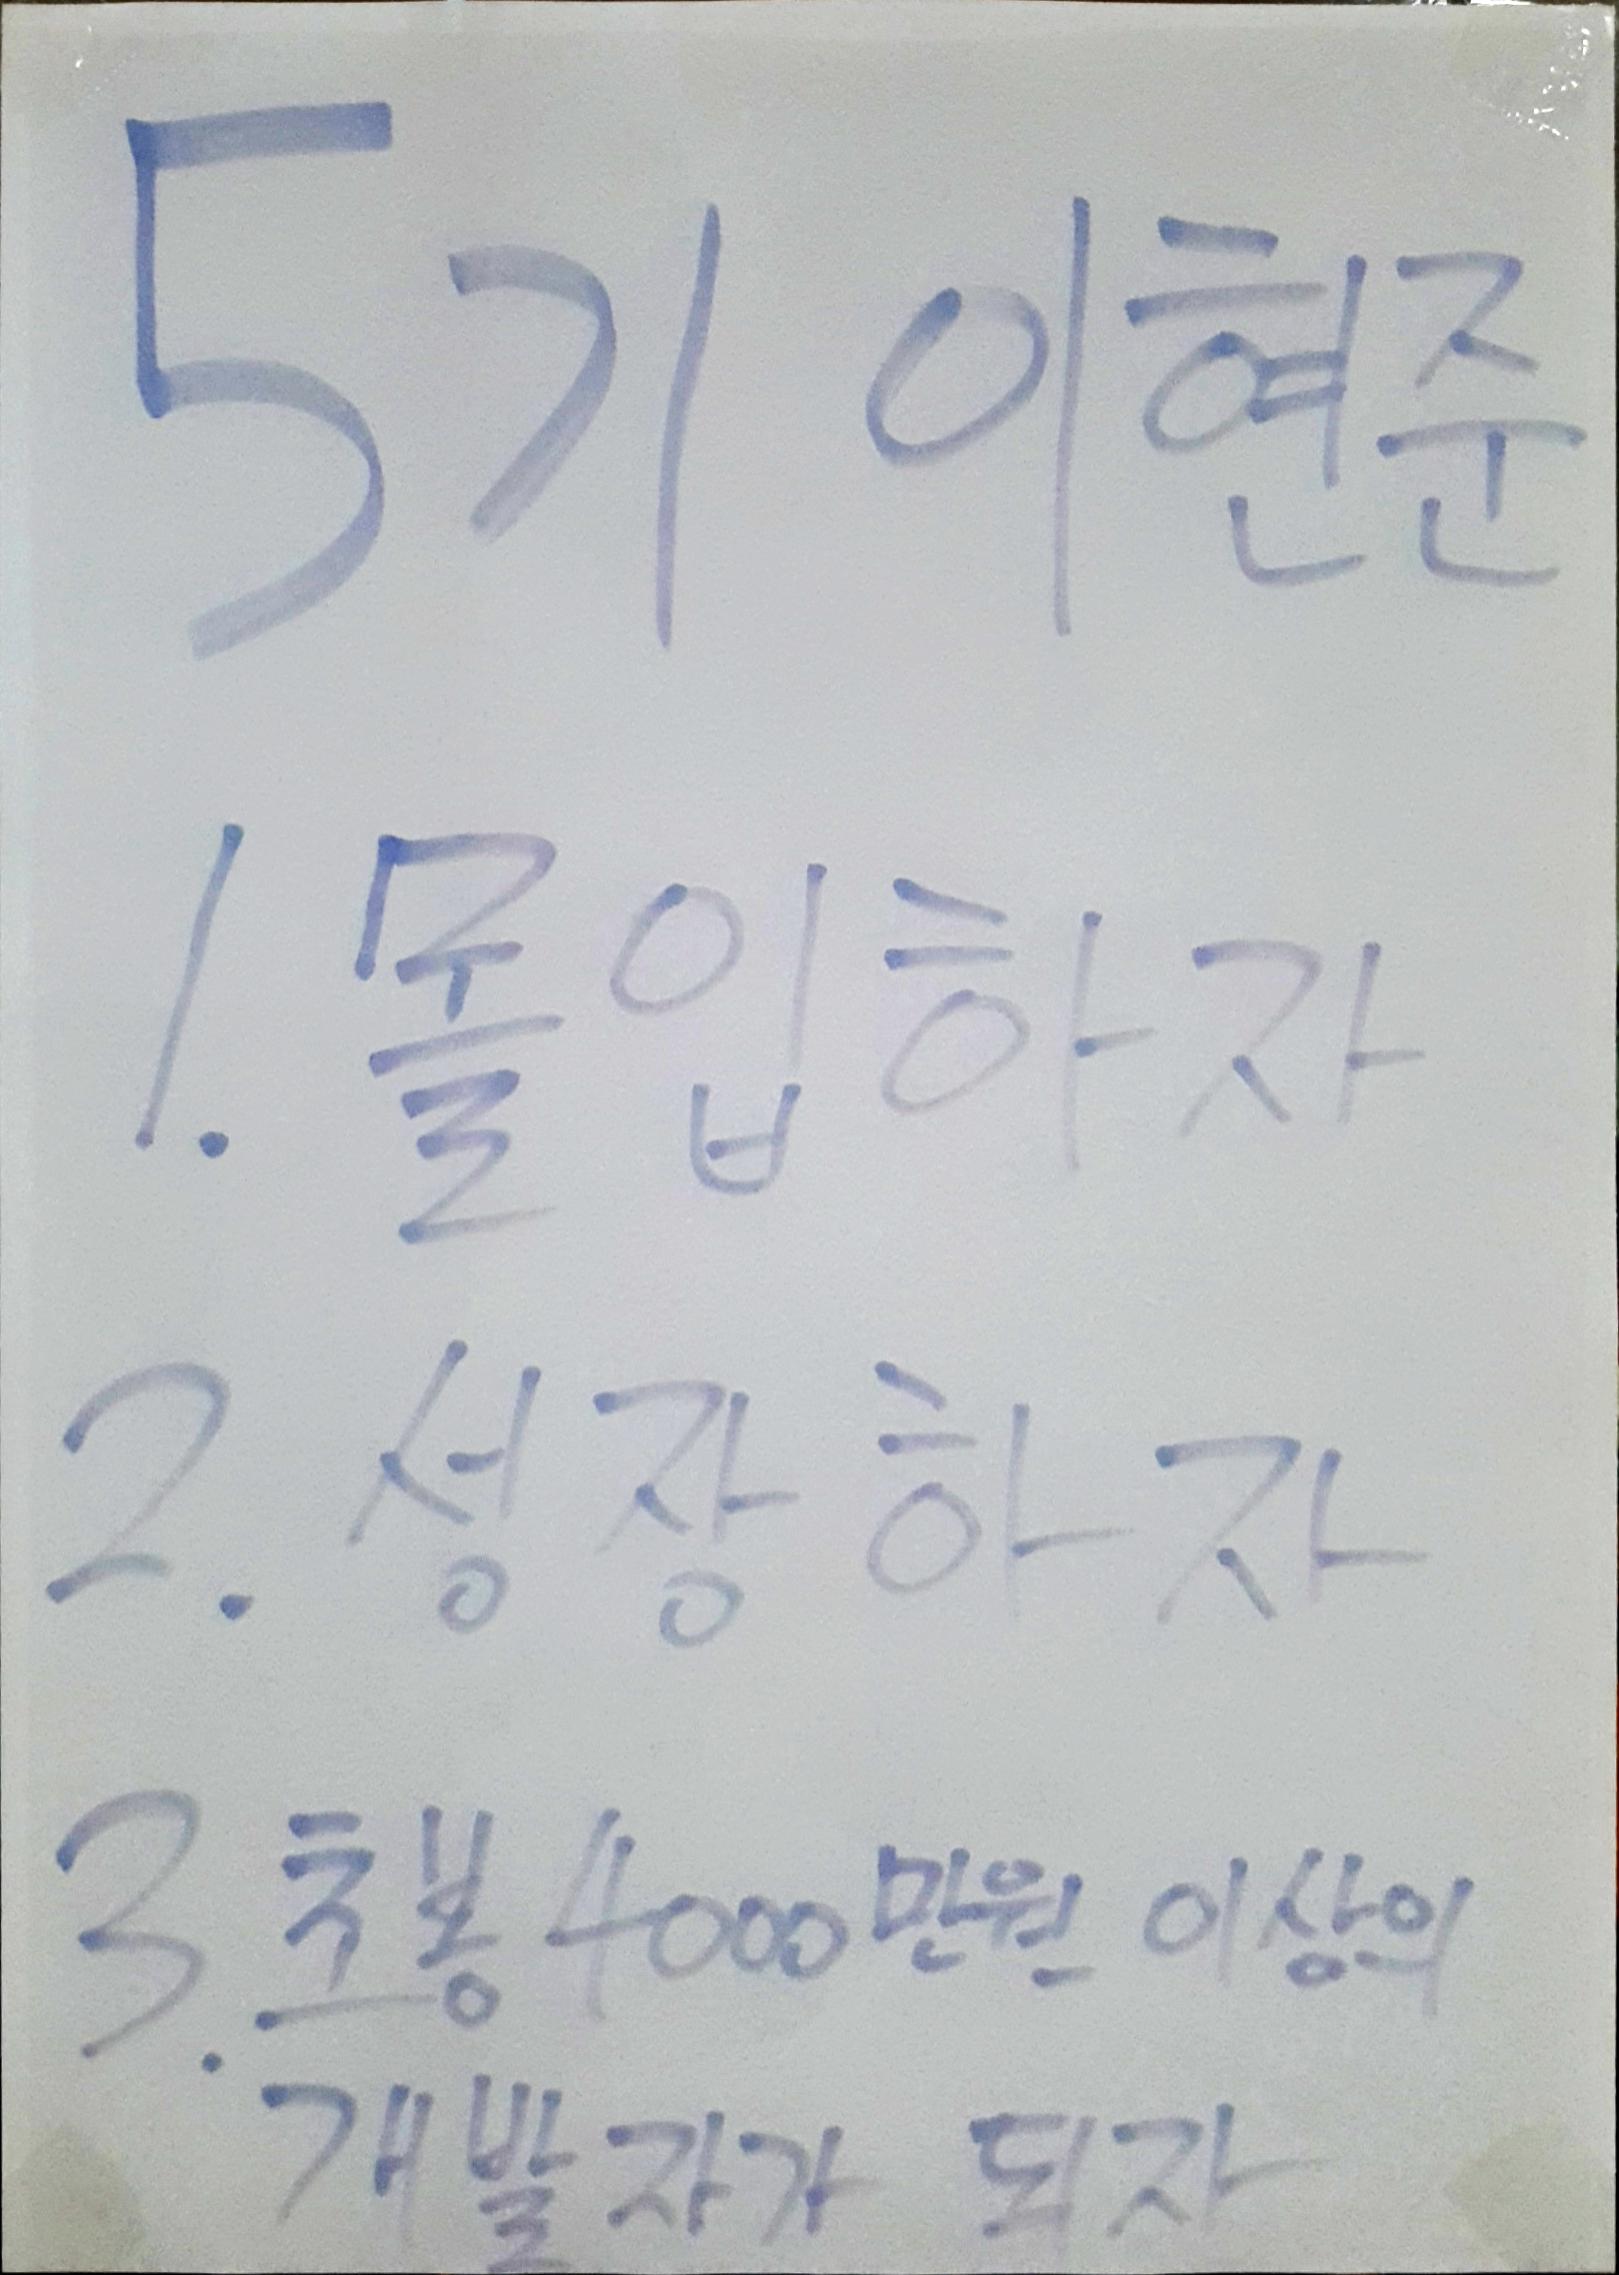 5기 이현준
1. 몰입하자
2. 성장하자
3. 초봉 4000만원 이상의
개발자가 되자